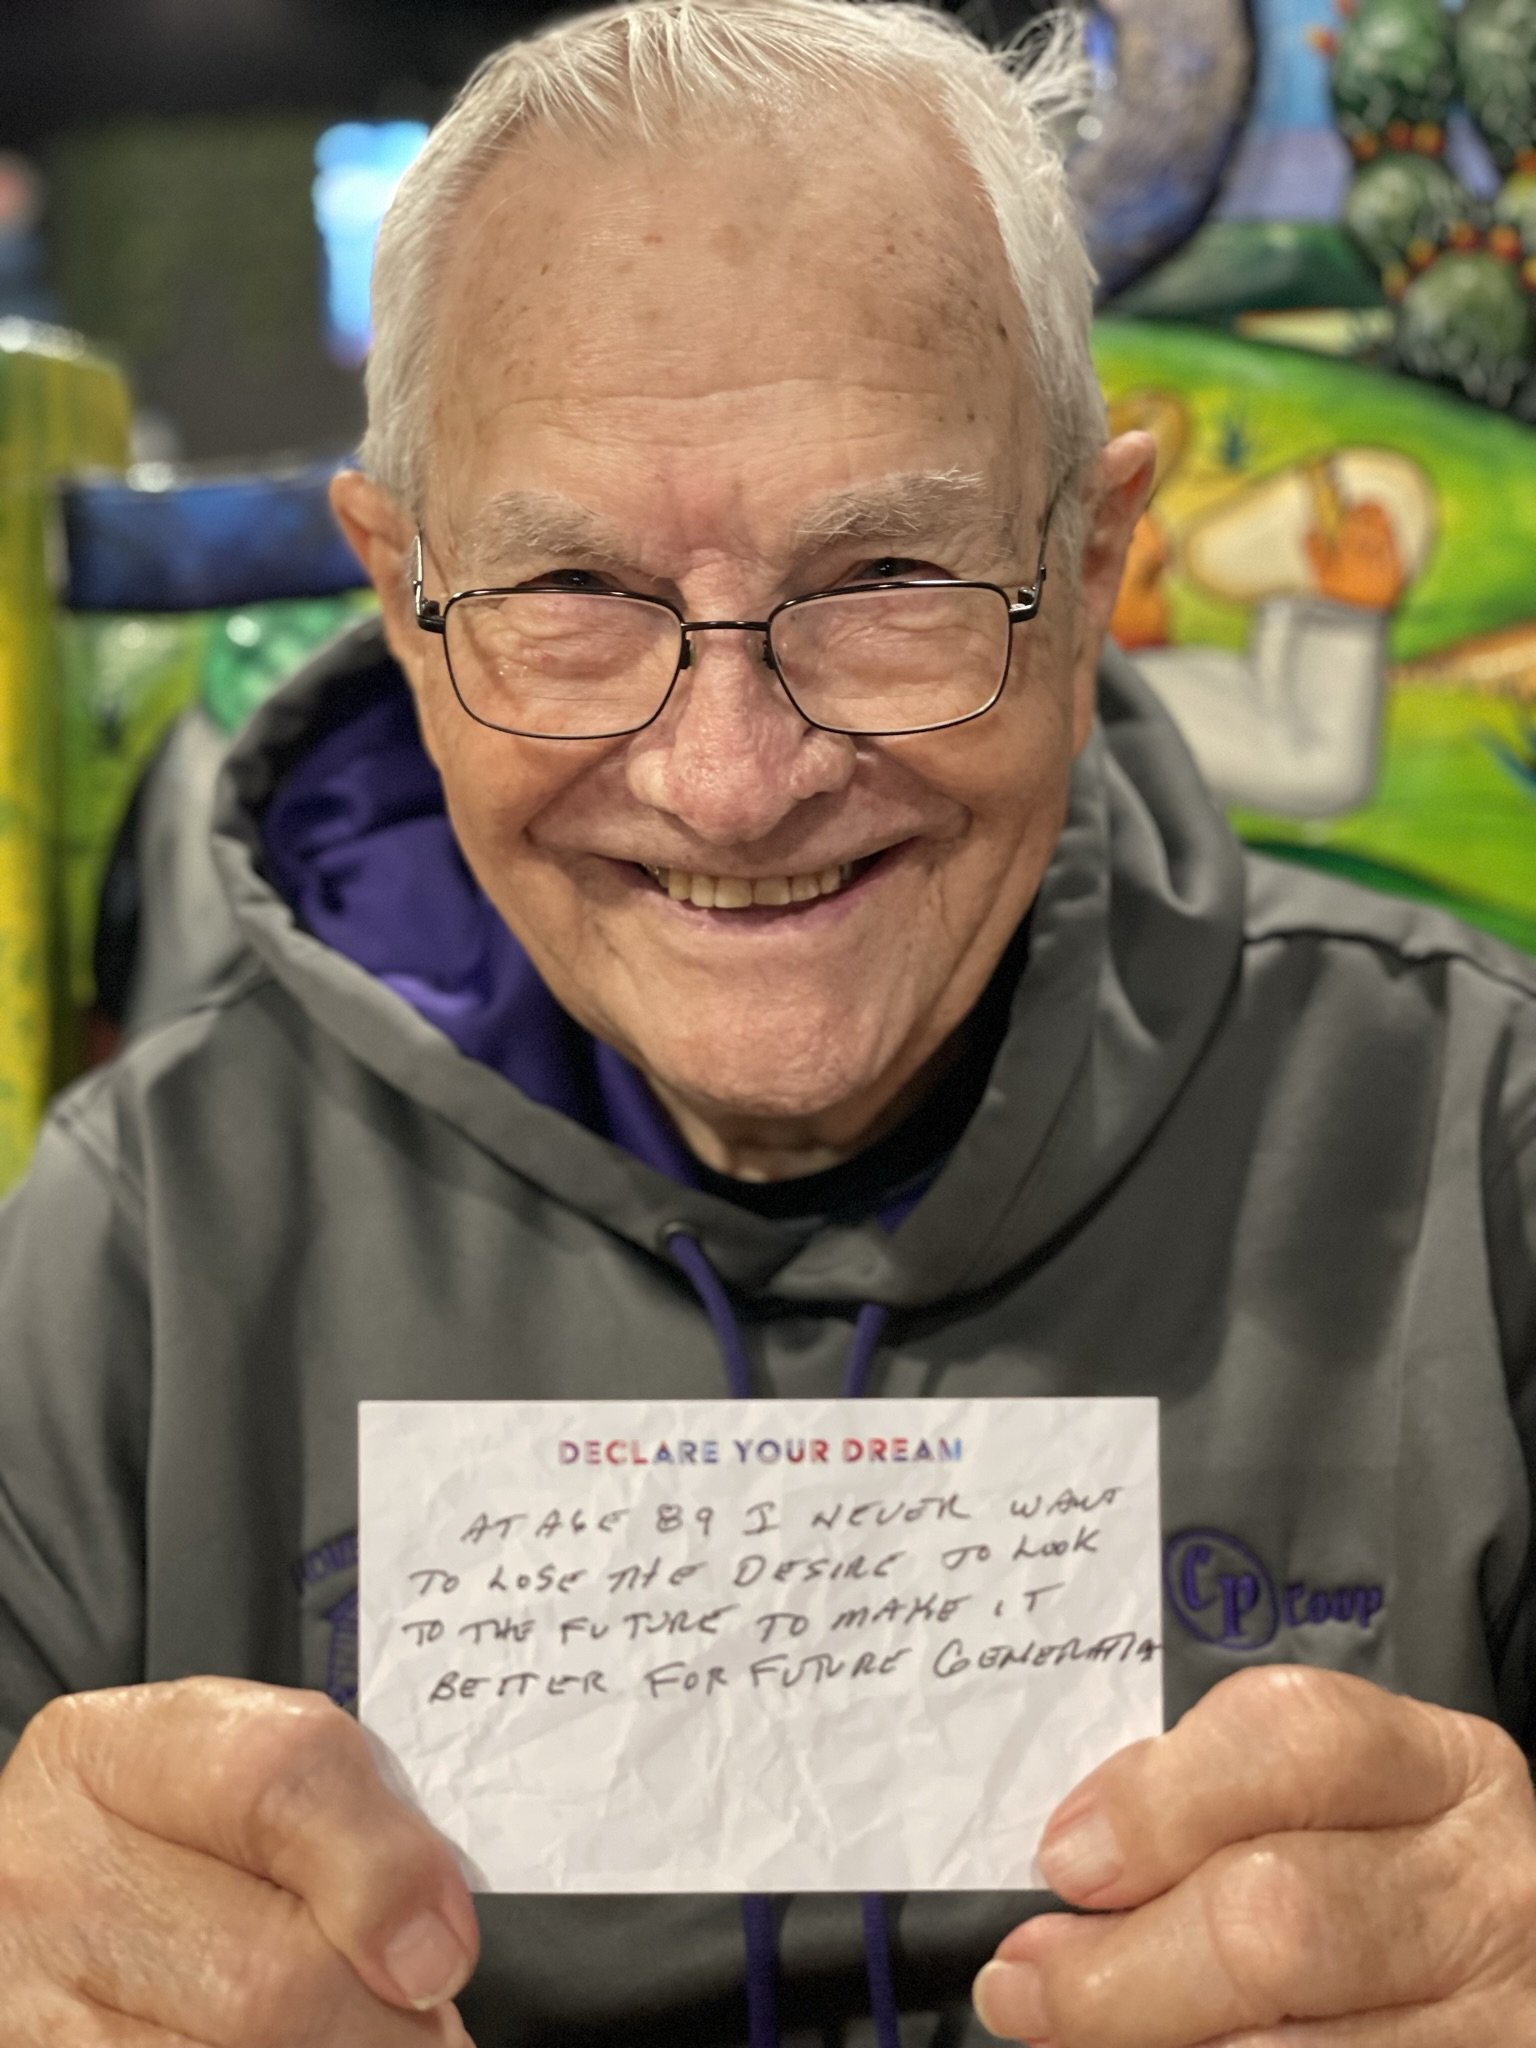 DECLARE YOUR DREAM
AT AGE 89 I NEVER WANT
TO LOSE THE DESIRE TO LOOK
TO THE FUTURE TO MAKE IT
BETTER FOR FUTURE
CP Coop